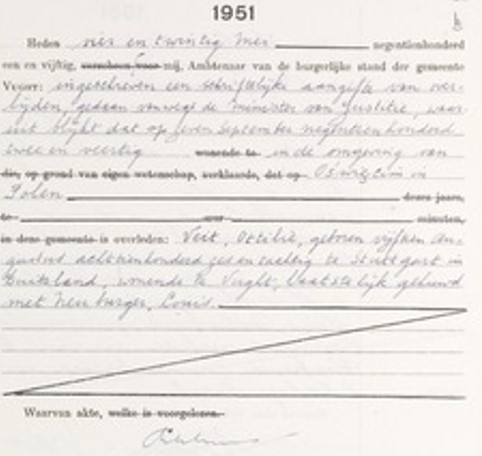 1951
Heden vier en twintig Mei negentienhonderd
een en vijftig, verscheen voor mij, Ambtenaar van de burgerlijke stand der gemeente
Vught: ingeschreven een schriftelijke aangifte van over-
lijden, gedaan vanwege de Minister van Justitie, waar-
uit blijkt dat op zeven September negentienhonderd
twee en veertig wonende te in de omgeving van
die, op grond van eigen wetenschap, verklaarde, dat op Oswiecim in
Polen dezes jaars,
te uur minuten,
in deze gemeente is overleden: Veit, Ottilie, geboren vijftien Au-
gustus achttienhonderd zes en tachtig te Stuttgart in
Duitsland, wonende te Vught, laatstelijk gehuwd
met Neuburger, Louis.
Waarvan akte, welke is voorgelezen.